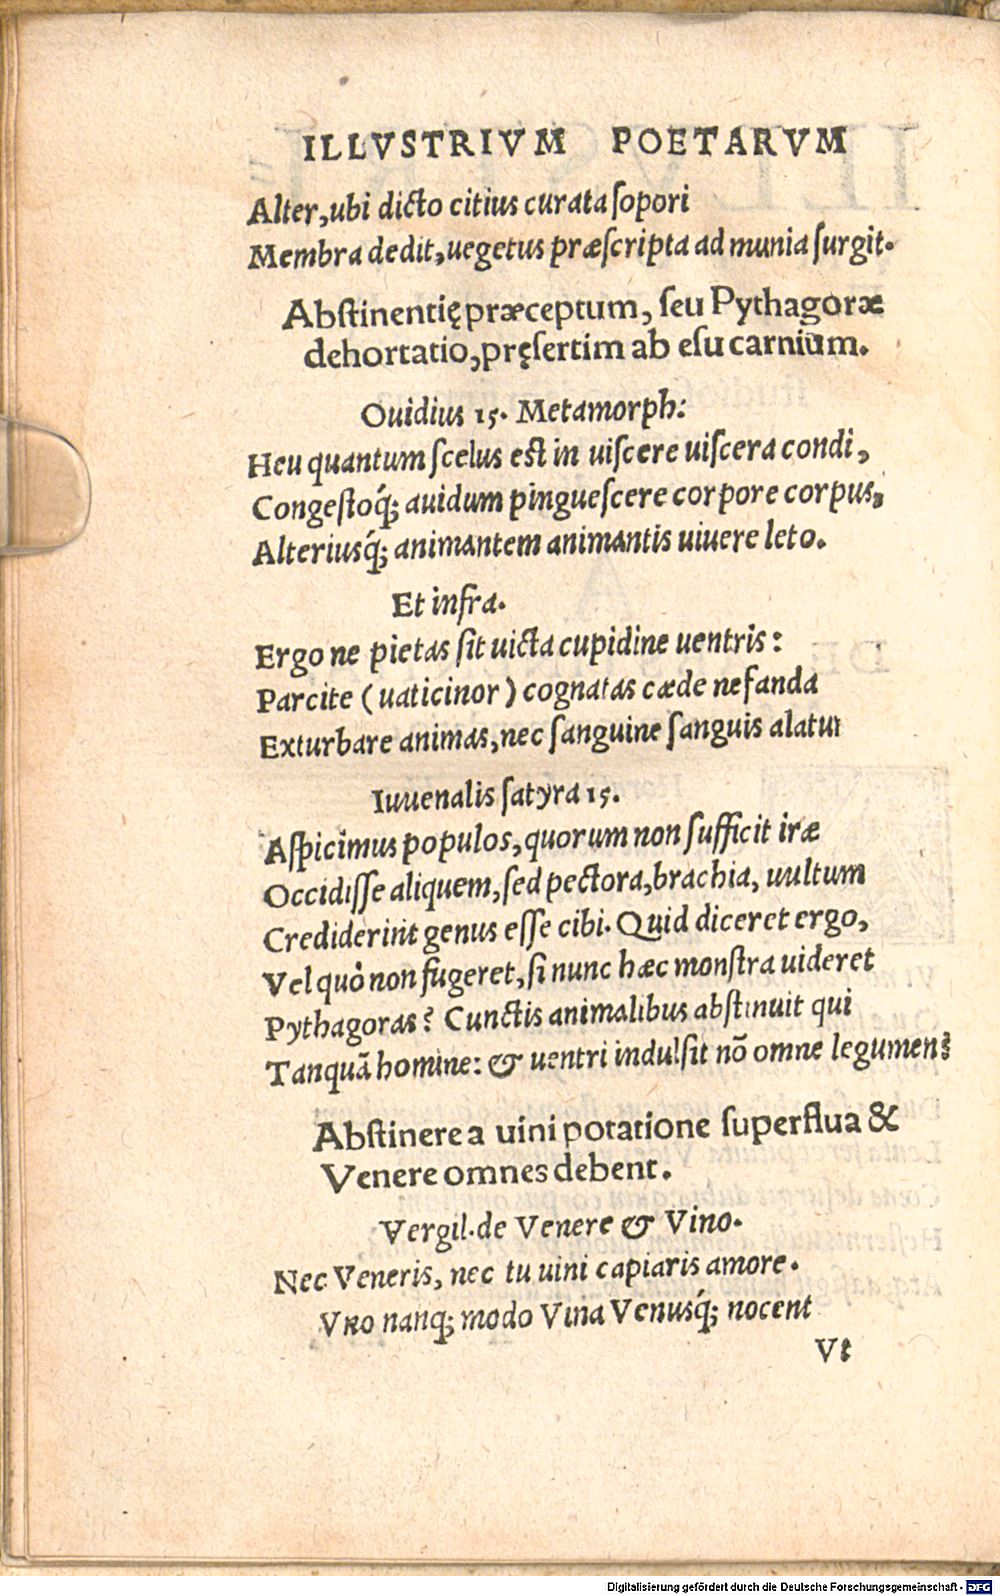 ILLVSTRIVM POETARVM
Alter,ubi dicto citius curata ſopori
Membra dedit,uegetus præſcripta ad munia ſurgit.
Abſtinentię præceptum, ſeu Pythagoræ
dehortatio,pręſertim ab eſu carnium.
Ouidius 15. Metamorph:
Heu quantum ſcelus eſt in uiſcere uiſcera condi,
Congeſtoq́; auidum pingueſcere corpore corpus,
Alteriusq́; animantem animantis uiuere leto.
Et infra.
Ergo ne pietas ſit uicta cupidine uentris:
Parcite (uaticinor) cognatas cæde nefanda
Exturbare animas,nec ſanguine ſanguis alatur
Iuuenalis ſatyra 15.
Aſpicimus populos,quorum non ſufficit iræ
Occidiſſe aliquem,ſed pectora,brachia, uultum
Crediderint genus eſſe cibi. Quid diceret ergo,
Vel quò non fugeret,ſi nunc hæc monſtra uideret
Pythagoras? Cunctis animalibus abſtinuit qui
Tanquã homine: & uentri indulſit nõ omne legumen?
Abſtinere a uini potatione ſuperflua &
Venere omnes debent.
Vergil.de Venere & Vino.
Nec Veneris, nec tu uini capiaris amore.
Vno nanq; modo Vina Venusq́; nocent
Vt
Digitalisierung gefördert durch die Deutsche Forschungsgemeinschaft - DFG